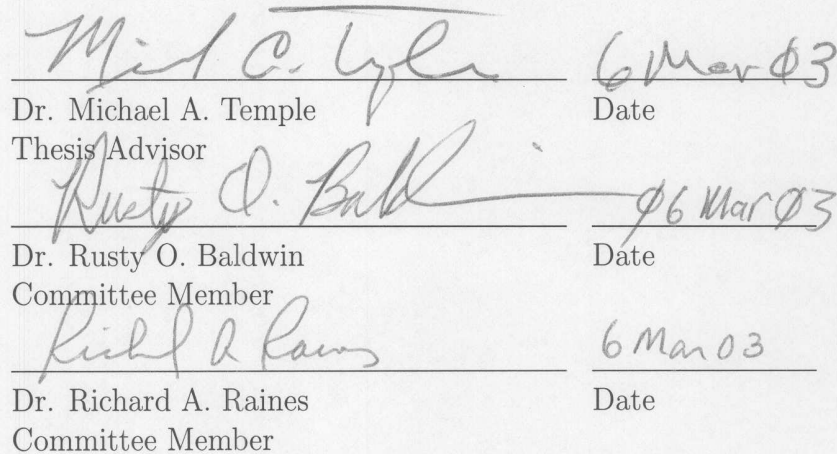 6 Mar 03
Dr. Michael A. Temple Date
Thesis Advisor
Rusty O. Baldwin 06 Mar 03
Dr. Rusty O. Baldwin Date
Committee Member
Richard A Raines 6 Mar 03
Dr. Richard A. Raines Date
Committee Member